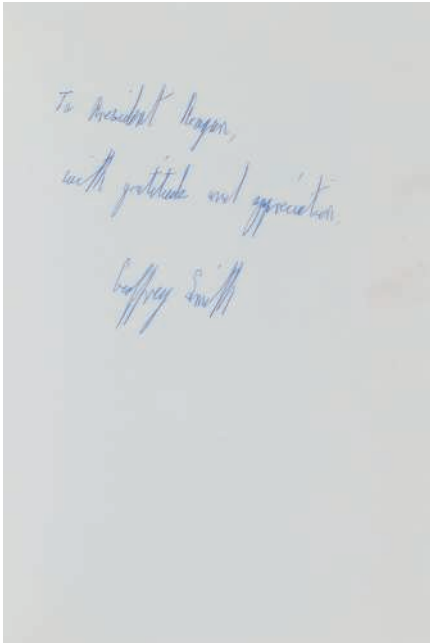 To President Reagan,
with gratitude and appreciation.
Geoffrey Smith